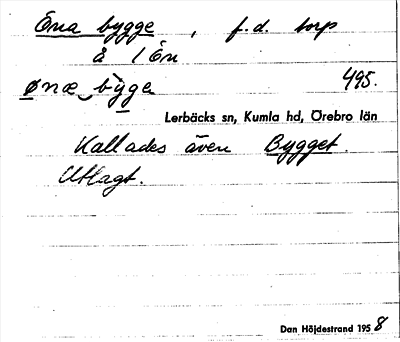 Öna bygge, f.d. torp
å 1 Ön
ønæ byge 495.
Lerbäcks sn, Kumla hd, Örebro län
Kallades även Bygget.
Utlagt.
Dan Höjdestrand 1958